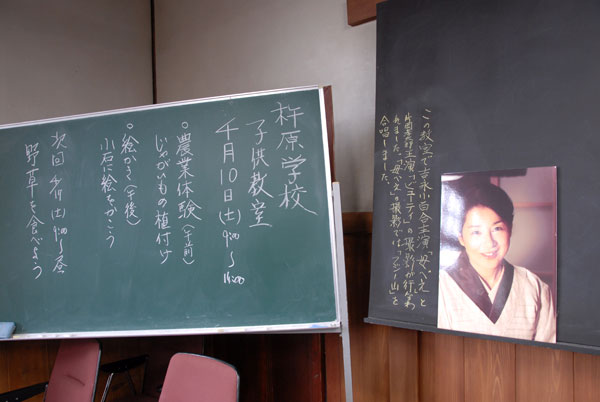 杵原学校
子供教室
4月10日(土)9:00〜
14:00
○農業体験(午前)
じゃがいもの植付け
○絵かき(午後)
小石に絵をかこう
次回 4/17(土)9:00〜昼
野草を食べよう
この教室で吉永小百合主演「母べえ」と
片岡孝太郎主演「ビューティ」の撮影が行な
われました。「母べえ」の撮影では「ふじの山」を
合唱しました。